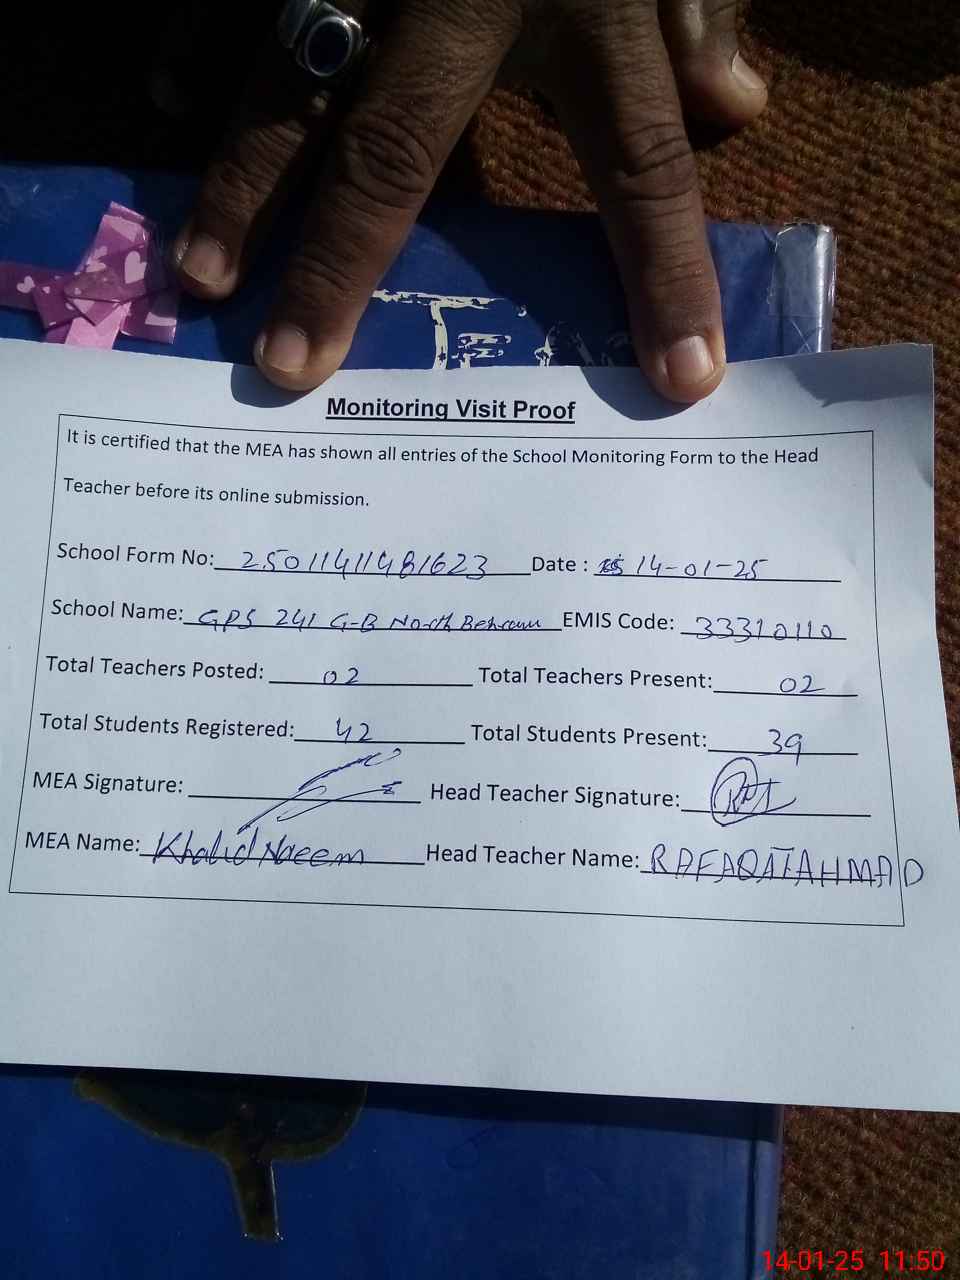 Monitoring Visit Proof
It is certified that the MEA has shown all entries of the School Monitoring Form to the Head
Teacher before its online submission.
School Form No: 25011411481623 Date : 14-01-25
School Name: GPS 241 G-B North Behram EMIS Code: 33310110
Total Teachers Posted: 02 Total Teachers Present: 02
Total Students Registered: 42 Total Students Present: 39
MEA Signature: Head Teacher Signature:
MEA Name: Khalid Naeem Head Teacher Name: RAFAQAT AHMAD
14-01-25 11:50